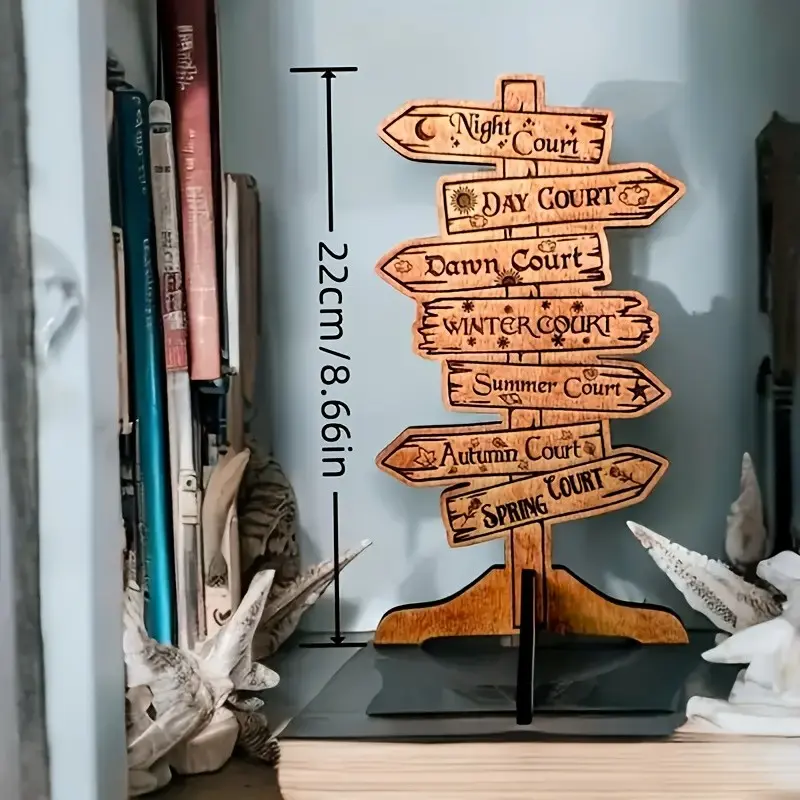 Night
Court
DAY COURT
Dawn Court
WINTER COURT
Summer Court
Autumn Court
SPRING COURT
22cm/8.66in